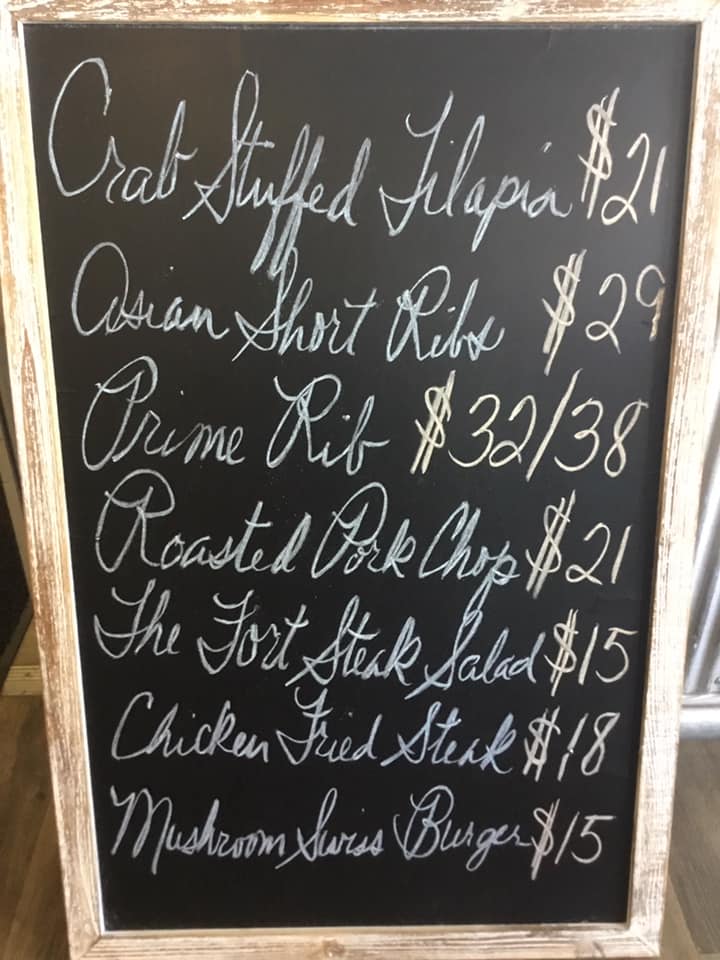 Crab Stuffed Tilapia $21
Asian Short Ribs $29
Prime Rib $32/38
Roasted Pork Chop $21
The Fort Steak Salad $15
Chicken Fried Steak $18
Mushroom Swiss Burger $15